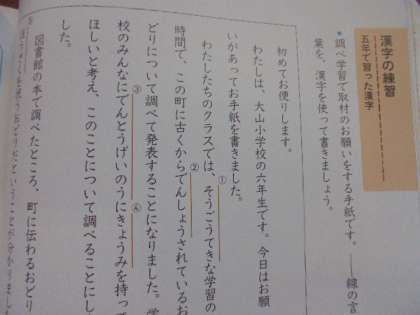 漢字の練習
五年で習った漢字
調べ学習で取材のお願いをする手紙です。――線の言
葉を、漢字を使って書きましょう。
初めてお便りします。
わたしは、大山小学校の六年生です。今日はお願
いがあってお手紙を書きました。
わたしたちのクラスでは、①そうごうてきな学習の
時間で、この町に古くから②でんしょうされているお
どりについて調べて発表することになりました。学
校のみんなに③でんとうげいのうに④きょうみを持って
ほしいと考え、このことについて調べることにし
ました。
図書館の本で調べたところ、町に伝わるおどり